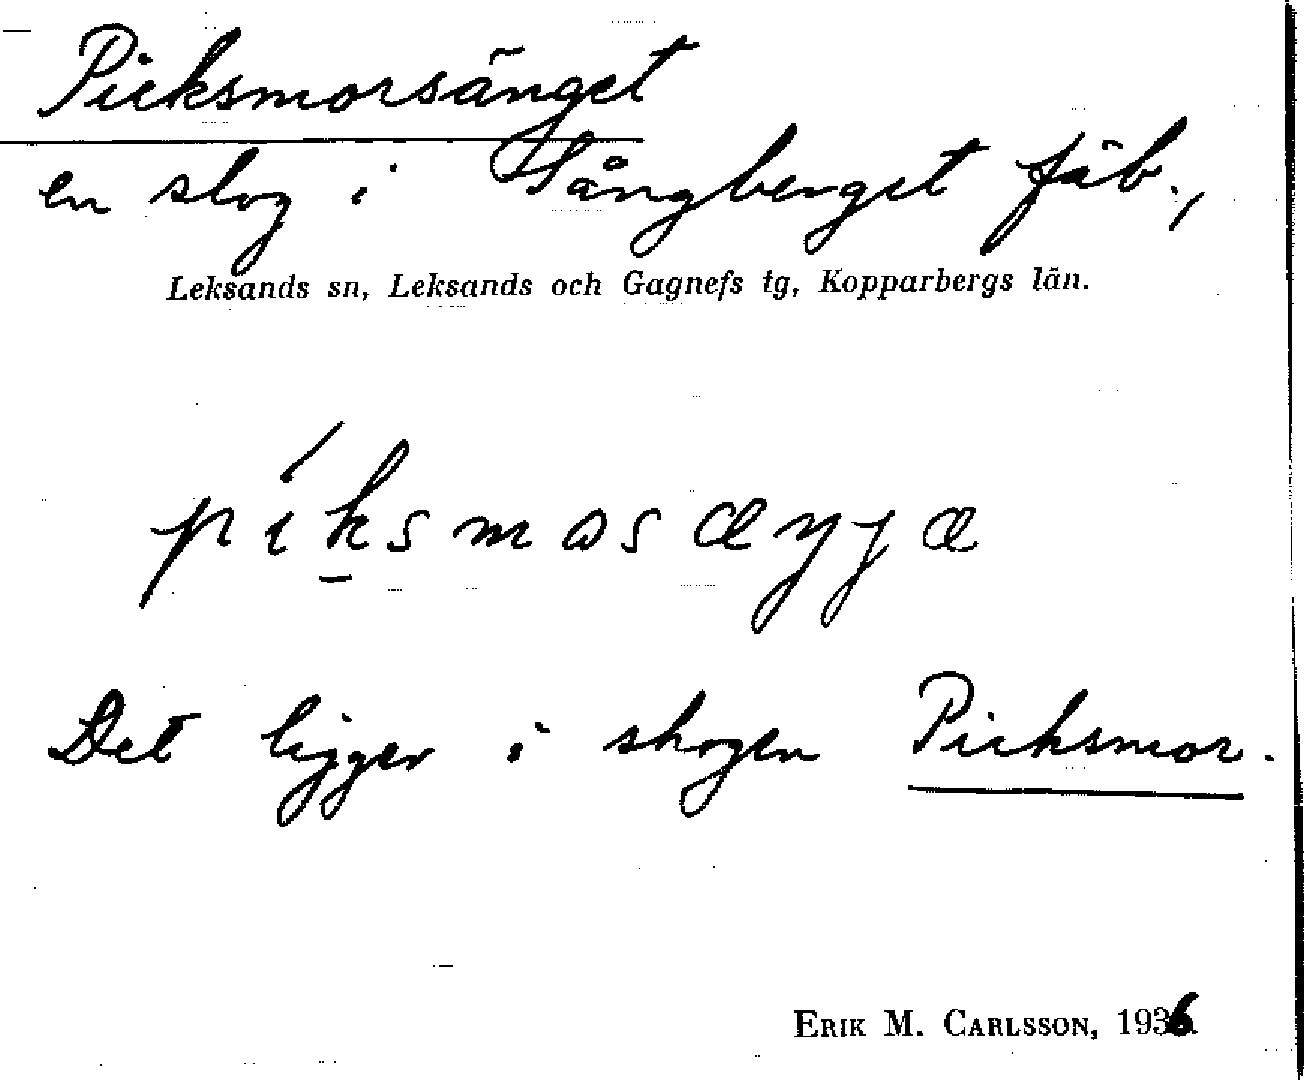 Picksmorsänget
en slog i Sångberget fäb.,
Leksands sn, Leksands och Gagnefs tg, Kopparbergs län.
píksmɒsæŋjæ
Det ligger i skogen Picksmor.
ERIK M. CARLSSON, 1936